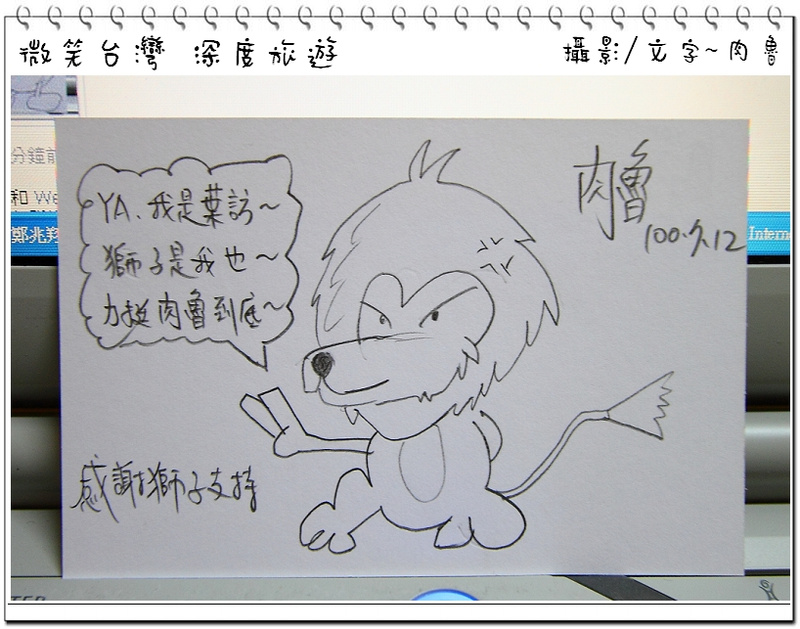 微笑台灣 深度旅遊
攝影/文字~肉魯
分鐘前
和 We
鄭兆翔
Intern
YA、我是葉訪~
獅子是我也~
力挺肉魯到底~
肉魯
100.7.12
感謝獅子支持